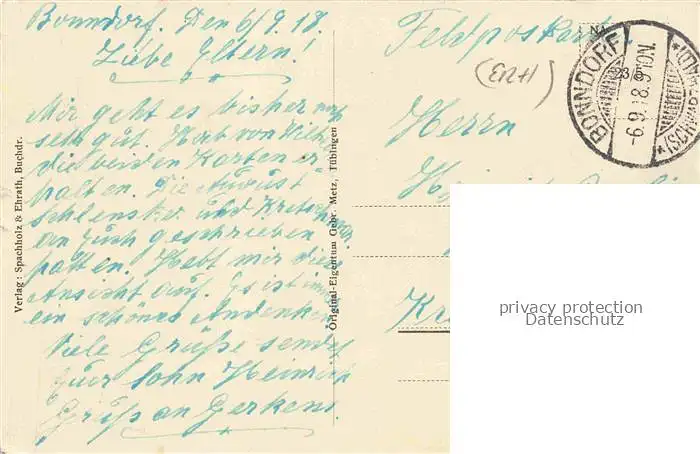 Bonndorf. Den 6/9.18.
Liebe Eltern!
Mir geht es bisher noch
sehr gut. Hab von Wilh.
die beiden Karten er-
halten. Die August
Schlenska und
an Euch geschrieben
hatten. Hebt mir die
Ansicht auf. Es ist im
ein schönes Andenken
Viele Grüße sendet
Euer Sohn Heinrich
Gruß an Gerkens.
Verlag: Spachholz & Ehrath, Buchdr.
Original-Eigentum Gebr. Metz, Tübingen
Feldpostkarte
Herrn
Kr
BONNDORF
-6.9.18.9-10N.
(SCHWARZW
privacy protection
Datenschutz